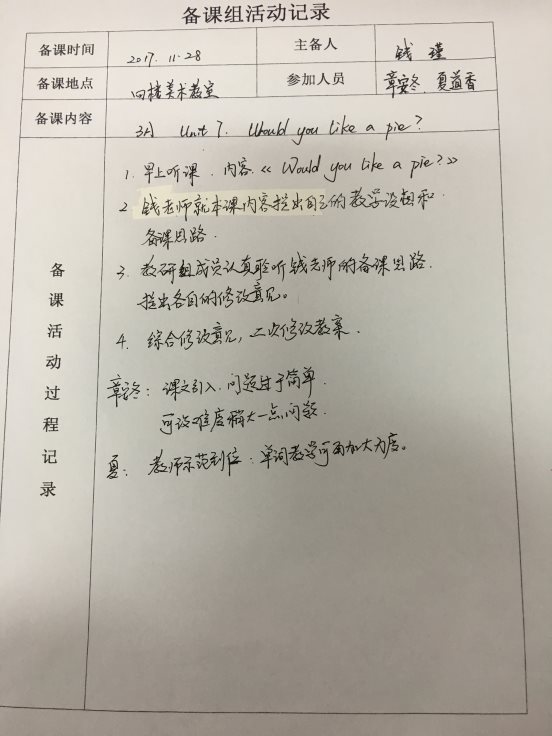 备课组活动记录
备课时间 2017.11.28 主备人 钱瑾
备课地点 四楼美术教室 参加人员 章安冬、夏道香
备课内容 3A Unit 7. Would you like a pie?
备课活动过程记录
1. 早上听课. 内容《Would you like a pie?》
2. 钱老师就本课内容提出自己的教学设想和
备课思路.
3. 教研组成员认真聆听钱老师的备课思路.
提出各自的修改意见。
4. 综合修改意见,二次修改教案.
章安冬: 课文引入. 问题过于简单.
可设难度稍大一点问题.
夏: 教师示范到位. 单词教学可再加大力度。